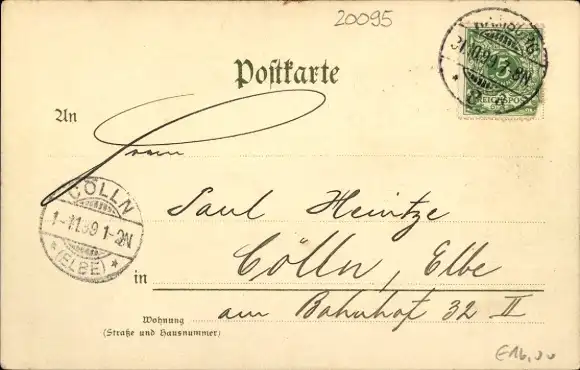 20095
Postkarte
31.10.99 5-8N
REICHSPOST
An
Herrn
CÖLLN
1-11.99 1-2N
* (ELBE) *
Paul Heintze
in Cölln, Elbe
Wohnung am Bahnhof 32 II
(Straße und Hausnummer)
€16,00